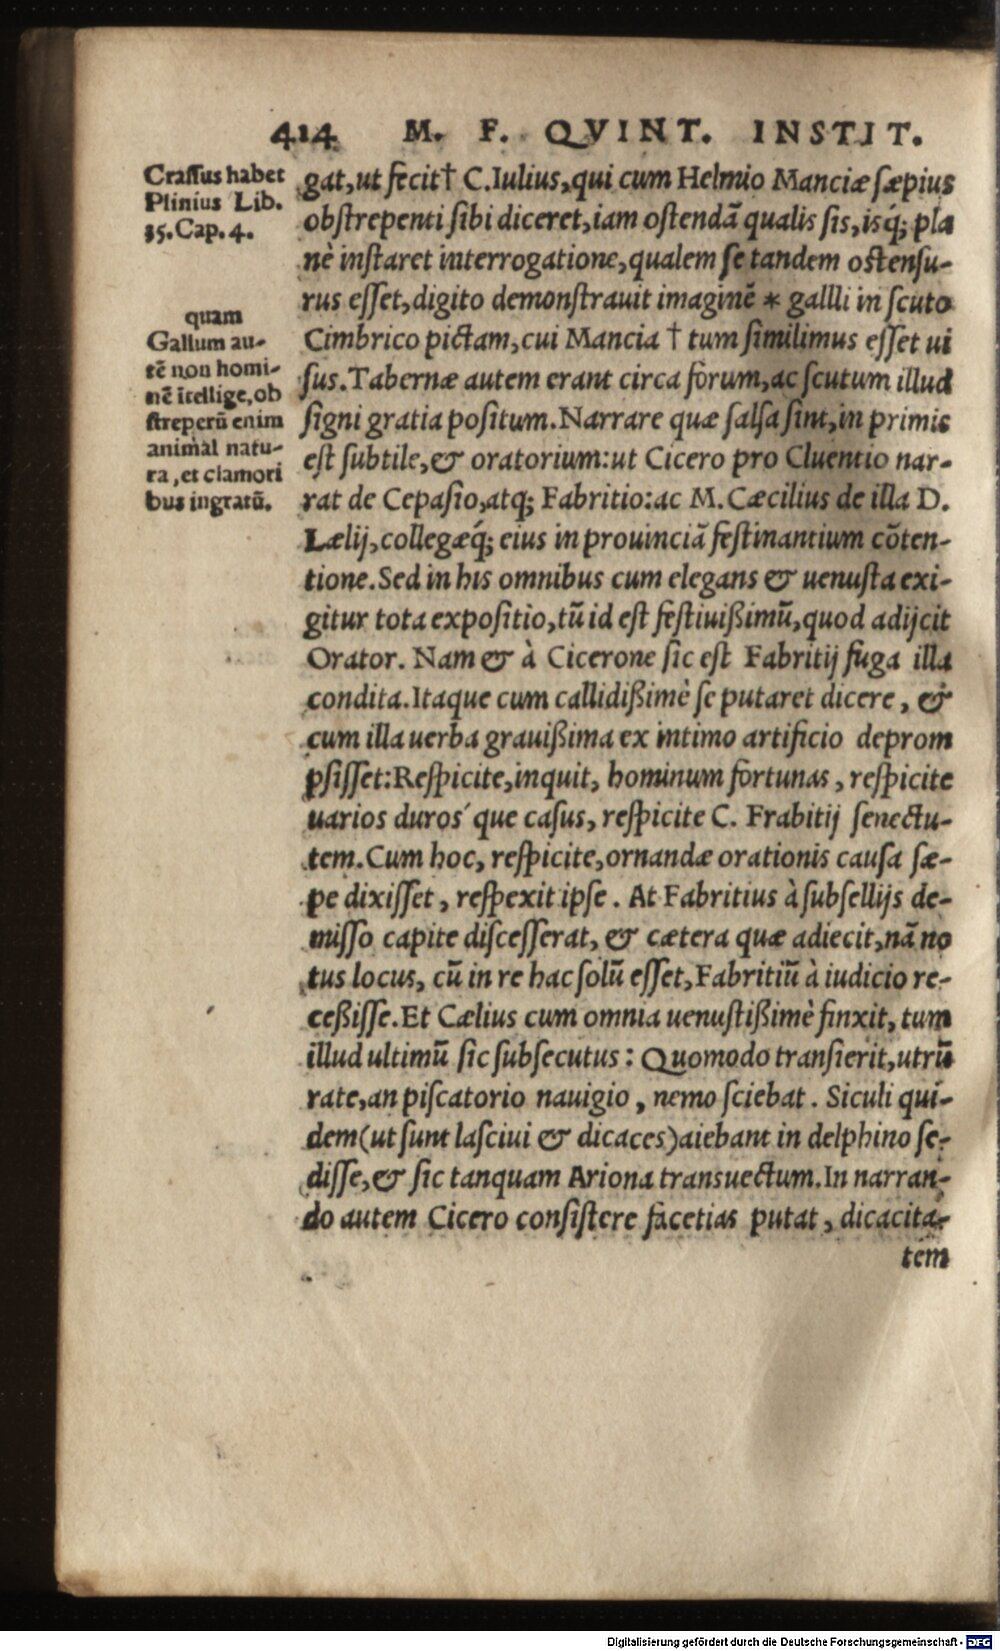 414 M. F. QVINT. INSTIT.
Crassus habet
Plinius Lib.
35. Cap. 4.
quam
Gallum au-
tē non homi-
nē ītellige, ob
streperū enim
animal natu-
ra, et clamori
bus ingratū.
gat, ut fecit† C. Iulius, qui cum Helmio Manciæ sæpius
obstrepenti sibi diceret, iam ostendā qualis sis, isq́; pla
nè instaret interrogatione, qualem se tandem ostensu-
rus esset, digito demonstrauit imaginē * gallli in scuto
Cimbrico pictam, cui Mancia † tum similimus esset ui
sus. Tabernæ autem erant circa forum, ac scutum illud
signi gratia positum. Narrare quæ salsa sint, in primis
est subtile, & oratorium: ut Cicero pro Cluentio nar-
rat de Cepasio, atq; Fabritio: ac M. Cæcilius de illa D.
Lælij, collegæq́; eius in prouinciā festinantium cōten-
tione. Sed in his omnibus cum elegans & uenusta exi-
gitur tota expositio, tū id est festiuißimū, quod adijcit
Orator. Nam & à Cicerone sic est Fabritij fuga illa
condita. Itaque cum callidißimè se putaret dicere, &
cum illa uerba grauißima ex intimo artificio deprom
psisset: Respicite, inquit, hominum fortunas, respicite
uarios duros´que casus, respicite C. Frabitij senectu-
tem. Cum hoc, respicite, ornandæ orationis causa sæ-
pe dixisset, respexit ipse. At Fabritius à subsellijs de-
misso capite discesserat, & cætera quæ adiecit, nā no
tus locus, cū in re hac solū esset, Fabritiū à iudicio re-
ceßisse. Et Cælius cum omnia uenustißimè finxit, tum
illud ultimū sic subsecutus: Quomodo transierit, utrū
rate, an piscatorio nauigio, nemo sciebat. Siculi qui-
dem (ut sunt lasciui & dicaces) aiebant in delphino se-
disse, & sic tanquam Ariona transuectum. In narran-
do autem Cicero consistere facetias putat, dicacita-
tem
Digitalisierung gefördert durch die Deutsche Forschungsgemeinschaft - DFG